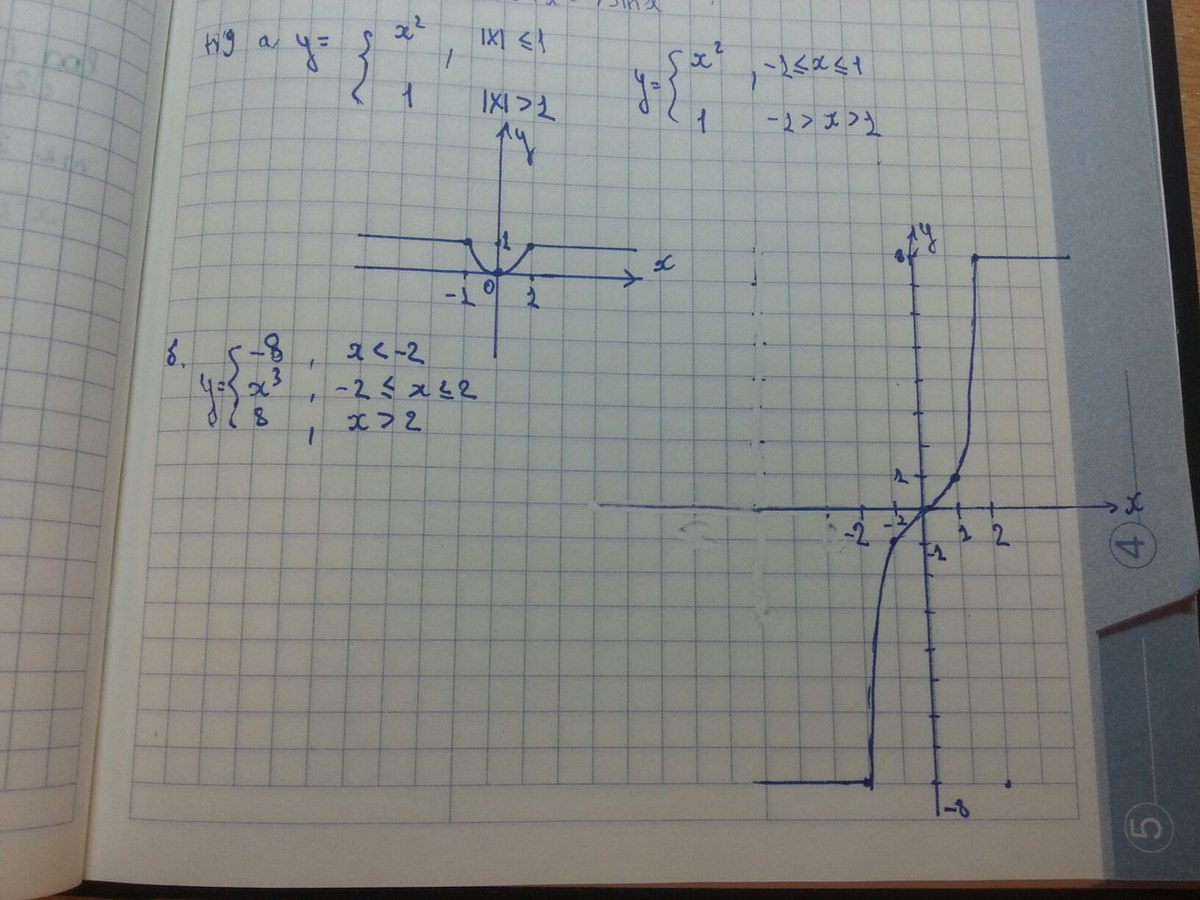 sin x
№9 а y= { x² , |x| ≤ 1
1 |x| > 1
y= { x² , -1 ≤ x ≤ 1
1 -1 > x > 1
y
1
x
-1 0 1
б. y= { -8 , x < -2
x³ , -2 ≤ x ≤ 2
8 , x > 2
y
8
1
x
-2 -1 1 2
-1
-8
4
5